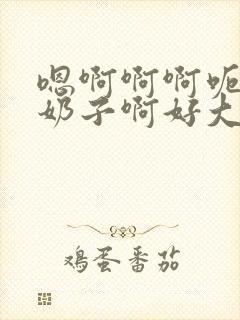 嗯啊啊啊呃
奶子啊好大
鸡蛋番茄